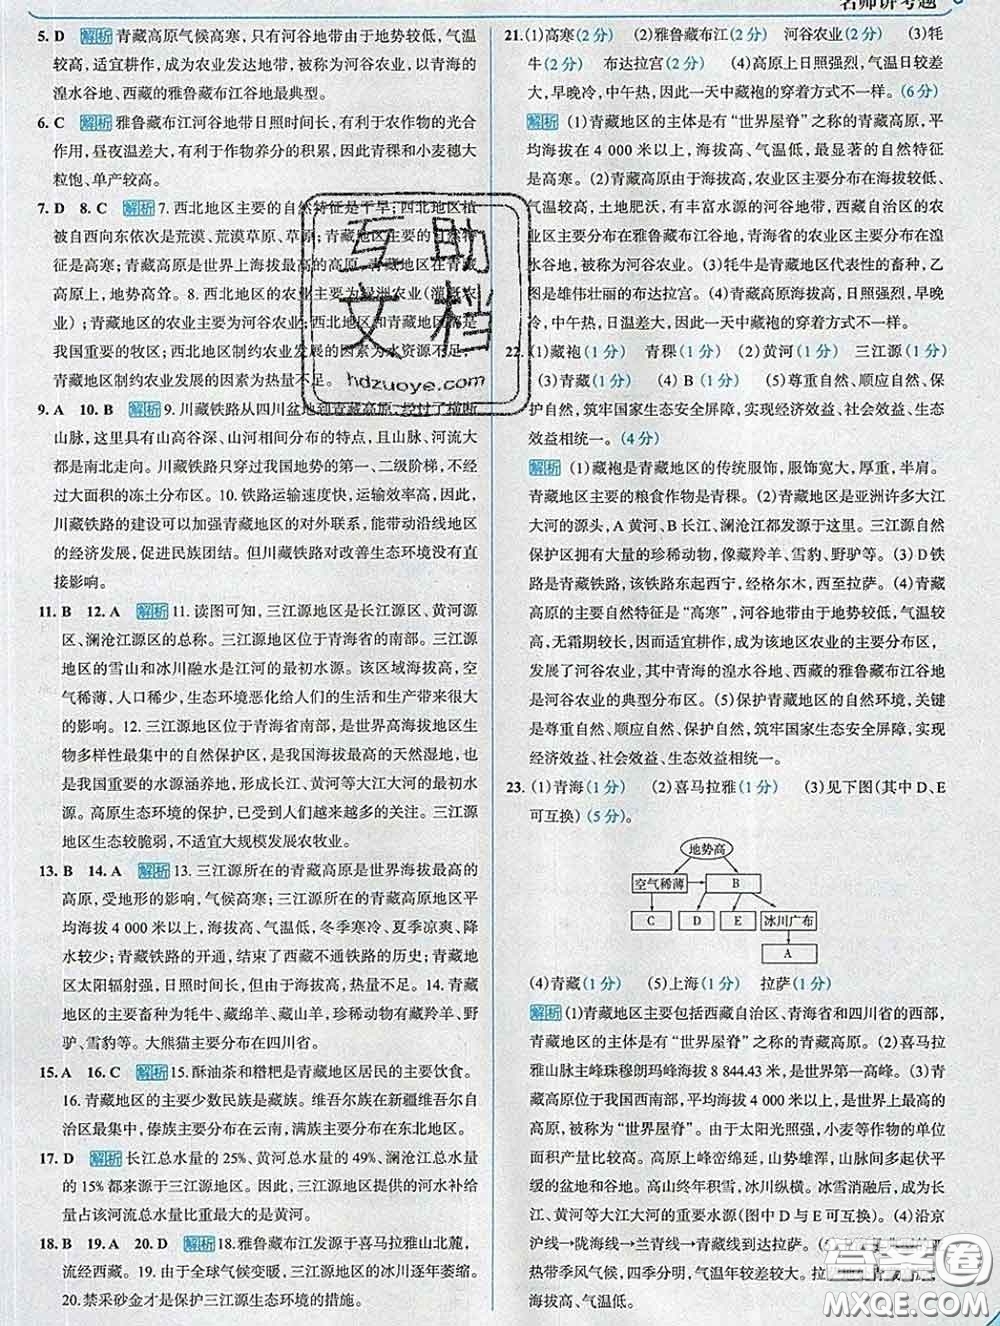 名师讲考题
5. D 解析 青藏高原气候高寒,只有河谷地带由于地势较低,气温
较高,适宜耕作,成为农业发达地带,被称为河谷农业,以青海的
湟水谷地、西藏的雅鲁藏布江谷地最典型。
6. C 解析 雅鲁藏布江河谷地带日照时间长,有利于农作物的光合
作用,昼夜温差大,有利于作物养分的积累,因此青稞和小麦穗大
粒饱、单产较高。
7. D 8. C 解析 7. 西北地区主要的自然特征是干旱;西北地区植
被自西向东依次是荒漠、荒漠草原、草原;青藏地区主要的自然特
征是高寒;青藏高原是世界上海拔最高的高原,青藏地区在青藏
高原上,地势高耸。8. 西北地区的农业主要为绿洲农业(灌溉农
业);青藏地区的农业主要为河谷农业;西北地区和青藏地区都是
我国重要的牧区;西北地区制约农业发展的因素为水资源不足,
青藏地区制约农业发展的因素为热量不足。
9. A 10. B 解析 9. 川藏铁路从四川盆地到青藏高原,经过了横断
山脉,这里具有山高谷深、山河相间分布的特点,且山脉、河流大
都是南北走向。川藏铁路只穿过我国地势的第一、二级阶梯,不经
过大面积的冻土分布区。10. 铁路运输速度快,运输效率高,因此,
川藏铁路的建设可以加强青藏地区的对外联系,能带动沿线地区
的经济发展,促进民族团结。但川藏铁路对改善生态环境没有直
接影响。
11. B 12. A 解析 11. 读图可知,三江源地区是长江源区、黄河源
区、澜沧江源区的总称。三江源地区位于青海省的南部。三江源
地区的雪山和冰川融水是江河的最初水源。该区域海拔高,空
气稀薄,人口稀少,生态环境恶化给人们的生活和生产带来很大
的影响。12. 三江源地区位于青海省南部,是世界高海拔地区生
物多样性最集中的自然保护区,是我国海拔最高的天然湿地,也
是我国重要的水源涵养地,形成长江、黄河等大江大河的最初水
源。高原生态环境的保护,已受到人们越来越多的关注。三江源
地区生态较脆弱,不适宜大规模发展农牧业。
13. B 14. A 解析 13. 三江源所在的青藏高原是世界海拔最高的
高原,受地形的影响,气候高寒。三江源所在的青藏高原地区平
均海拔 4 000 米以上,海拔高、气温低,冬季寒冷、夏季凉爽、降
水较少;青藏铁路的开通,结束了西藏不通铁路的历史;青藏地
区太阳辐射强,日照时间长,但由于海拔高,热量不足。14. 青藏
地区的主要畜种为牦牛、藏绵羊、藏山羊,珍稀动物为藏羚羊、野
驴、雪豹等。大熊猫主要分布在四川省。
15. A 16. C 解析 15. 酥油茶和糌粑是青藏地区居民的主要饮食。
16. 青藏地区的主要少数民族是藏族。维吾尔族在新疆维吾尔自
治区最集中,傣族主要分布在云南,满族主要分布在东北地区。
17. D 解析 长江总水量的 25%、黄河总水量的 49%、澜沧江总水量
的 15%都来源于三江源地区。因此,三江源地区提供的河水补给
量占该河流总水量比重最大的是黄河。
18. B 19. A 20. D 解析 18. 雅鲁藏布江发源于喜马拉雅山北麓,
流经西藏。19. 由于全球气候变暖,三江源地区的冰川逐年萎缩。
20. 禁采砂金才是保护三江源生态环境的措施。
21. (1)高寒(2 分) (2)雅鲁藏布江(2 分) 河谷农业(2 分) (3)牦
牛(2 分) 布达拉宫(2 分) (4)高原上日照强烈,气温日较差
大,早晚冷,中午热,因此一天中藏袍的穿着方式不一样。(6 分)
解析 (1)青藏地区的主体是有“世界屋脊”之称的青藏高原,平
均海拔在 4 000 米以上,海拔高、气温低,最显著的自然特征
是高寒。(2)青藏高原由于海拔高,农业区主要分布在海拔较低、
气温较高,土地肥沃,有丰富水源的河谷地带,西藏自治区的农
业区主要分布在雅鲁藏布江谷地,青海省的农业区主要分布在湟
水谷地,被称为河谷农业。(3)牦牛是青藏地区代表性的畜种,乙
图是雄伟壮丽的布达拉宫。(4)青藏高原海拔高,日照强烈,早晚
冷,中午热,日温差大,因此一天中藏袍的穿着方式不一样。
22. (1)藏袍(1 分) 青稞(1 分) (2)黄河(1 分) 三江源(1 分)
(3)青藏(1 分) (4) B (1 分) (5)尊重自然、顺应自然、保
护自然,筑牢国家生态安全屏障,实现经济效益、社会效益、生态
效益相统一。(4 分)
解析 (1)藏袍是青藏地区的传统服饰,服饰宽大,厚重,半肩。
青藏地区主要的粮食作物是青稞。(2)青藏地区是亚洲许多大江
大河的源头,A 黄河、B 长江、澜沧江都发源于这里。三江源自然
保护区拥有大量的珍稀动物,像藏羚羊、雪豹、野驴等。(3) D 铁
路是青藏铁路,该铁路东起西宁,经格尔木,西至拉萨。(4)青藏
高原的主要自然特征是“高寒”,河谷地带由于地势较低,气温较
高,无霜期较长,因而适宜耕作,成为该地区农业的主要分布区,
发展了河谷农业,其中青海的湟水谷地、西藏的雅鲁藏布江谷地
是河谷农业的典型分布区。(5)保护青藏地区的自然环境,关键
是尊重自然、顺应自然、保护自然,筑牢国家生态安全屏障,实现
经济效益、社会效益、生态效益相统一。
23. (1)青海(1 分) (2)喜马拉雅(1 分) (3)见下图(其中 D、E
可互换)(5 分)。
地势高
空气稀薄 B
C D E 冰川广布
A
(4)青藏(1 分) (5)上海(1 分) 拉萨(1 分)
解析 (1)青藏地区主要包括西藏自治区、青海省和四川省的西部,
青藏地区的主体是有“世界屋脊”之称的青藏高原。(2)喜马拉
雅山脉主峰珠穆朗玛峰海拔 8 844.43 米,是世界第一高峰。(3)青
藏高原位于我国西南部,平均海拔 4 000 米以上,是世界最高的高
原,被称为“世界屋脊”。由于太阳光照强,小麦等作物的单位
面积产量比较高。高原上峰峦绵延,山势雄浑,山脉之间镶嵌着平
缓的盆地和谷地。高山终年积雪,冰川纵横。冰雪消融后,成为长
江、黄河等大江大河的重要水源(图中 D 与 E 可互换)。(4)沿京
沪线→陇海线→兰青线→青藏线到达拉萨。(5)
带季风气候,四季分明,气温年较差较大。
海拔高、气温低。
互助
文档
hdzuoye.com
答案圈
MXQE.COM